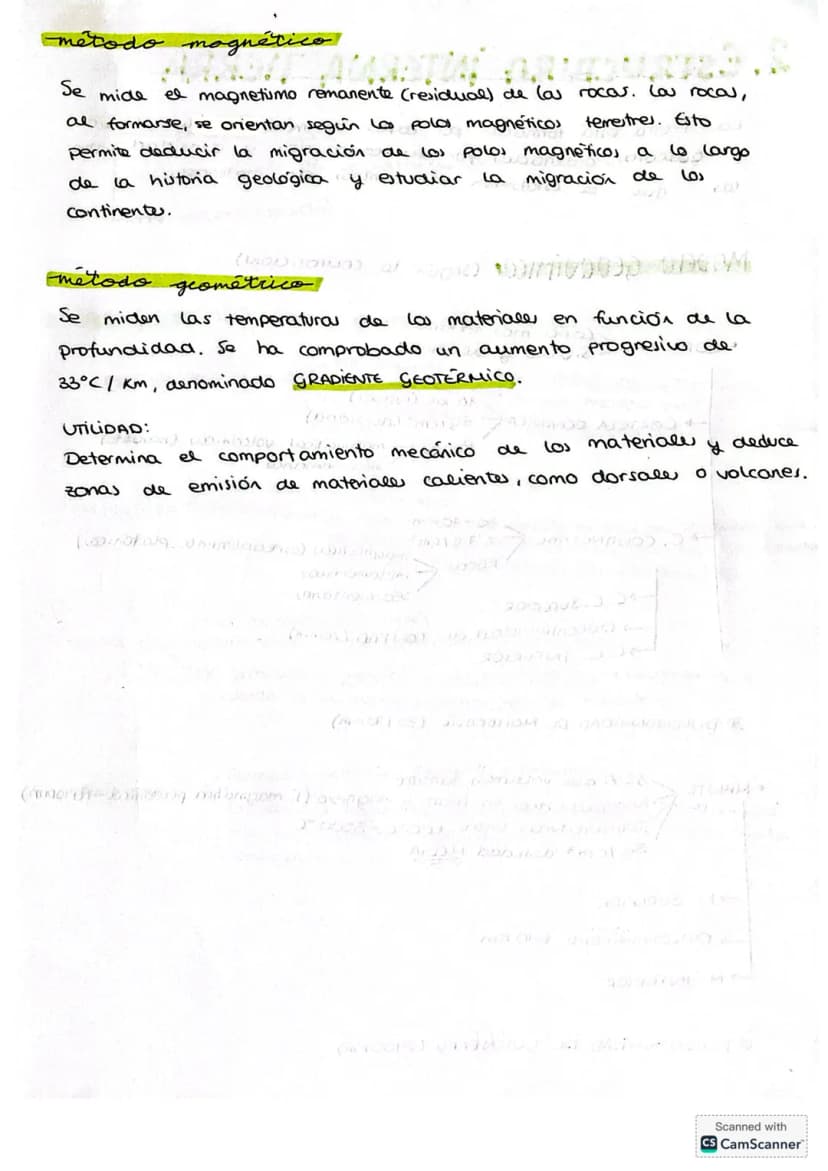 método magnético
Se mide el magnetismo remanente (residual) de las rocas. Las rocas,
al formarse, se orientan según los polos magnéticos terrestres. Esto
permite deducir la migración de los polos magnéticos a lo largo
de la historia geológica y estudiar la migración de los
continentes.
método geométrico
Se miden las temperaturas de los materiales en función de la
profundidad. Se ha comprobado un aumento progresivo de
33°C / Km, denominado GRADIENTE GEOTÉRMICO.
UTILIDAD:
Determina el comportamiento mecánico de los materiales y deduce
zonas de emisión de materiales calientes, como dorsales o volcanes.
Scanned with
CS CamScanner